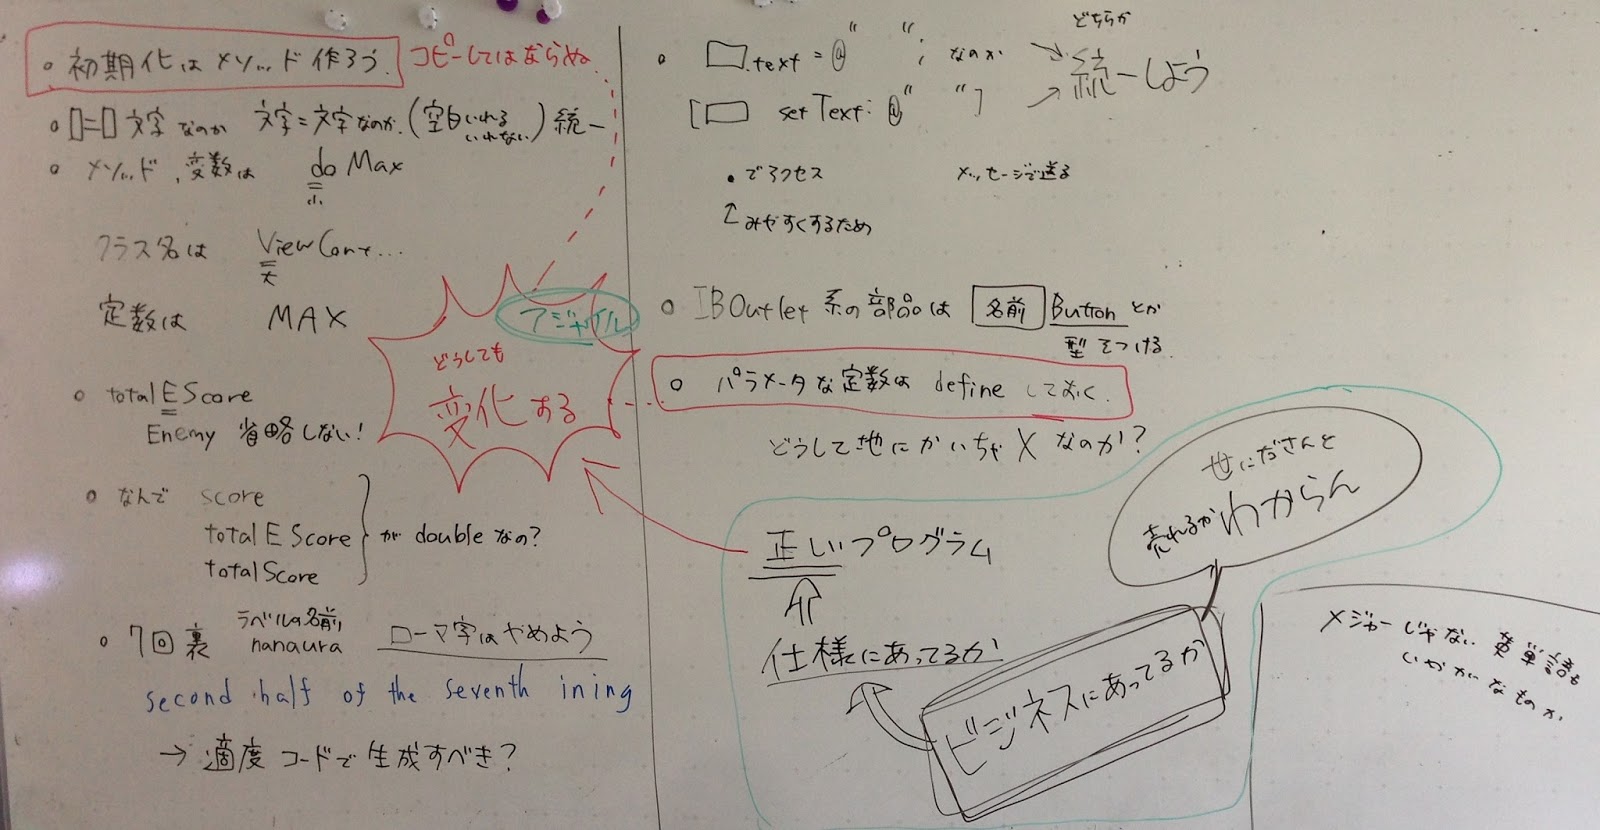 初期化はメソッド作ろう.
コピーしてはならぬ
□=□文字なのか 文字=文字なのか.(空白いれる いれない)統一
メソッド、変数は do Max
小
クラス名は ViewCont...
大
定数は MAX
total E Score
Enemy 省略しない!
なんで score
total E Score が double なの?
total Score
7回裏 ラベルの名前 nanaura ローマ字はやめよう
second half of the seventh ining
→ 適度コードで生成すべき?
アジャイル
どうしても
変化する
□.text = @" "; なのか
[□ setText: @" "]
どちらか
統一しよう
・でアクセス メッセージで送る
↑みやすくするため
IBOutlet 系の部品は 名前 Button とか
型をつける
パラメータな定数は define しておく.
どうして地にかいちゃ X なのか?
正しいプログラム
仕様にあってるか
ビジネスにあってるか
世にださんと
売れるかわからん
メジャーじゃない英単語も
いかがなものか